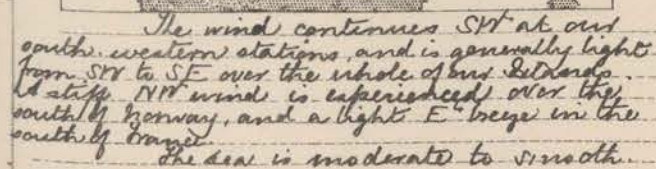 The wind continues SW at our
south-western stations, and is generally light
from SW to SE over the whole of our Islands.
A stiff NW wind is experienced over the
south of Norway, and a light Ely breeze in the
south of France.
The sea is moderate to smooth.